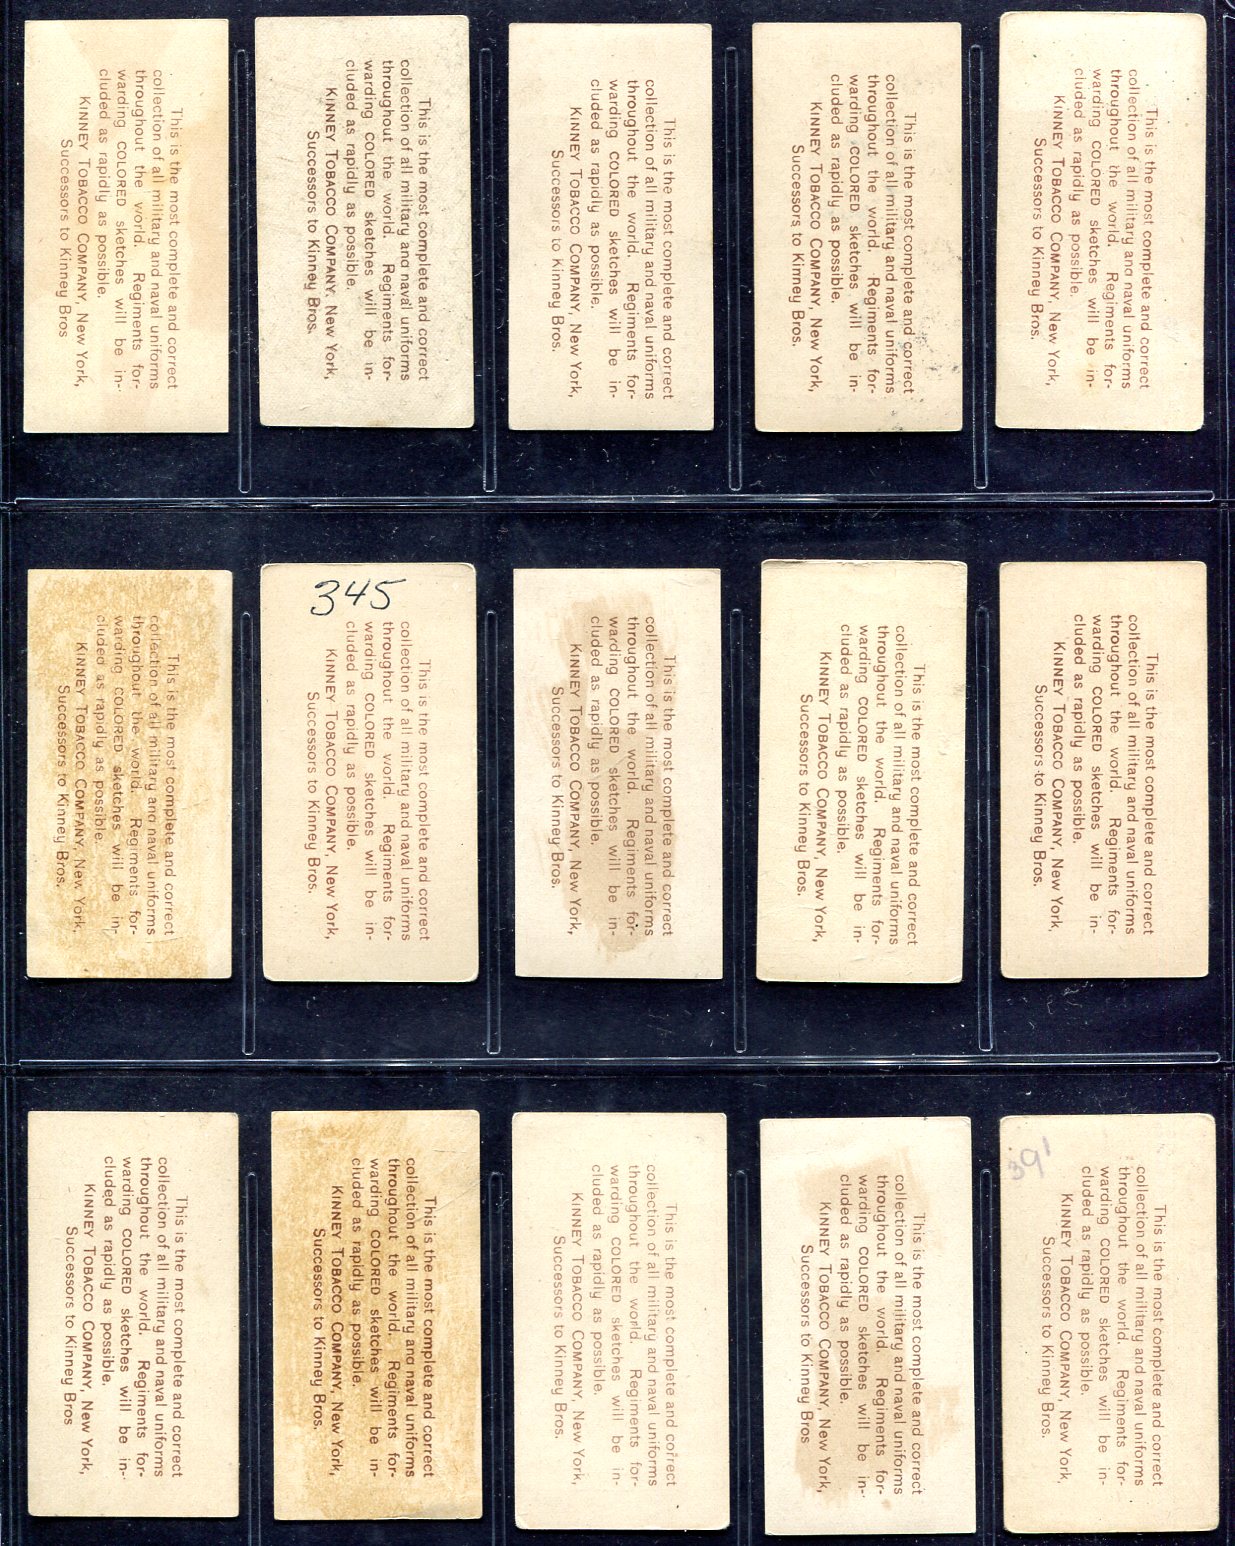 This is the most complete and correct
collection of all military and naval uniforms
throughout the world. Regiments for-
warding COLORED sketches will be in-
cluded as rapidly as possible.
KINNEY TOBACCO COMPANY, New York,
Successors to Kinney Bros
This is the most complete and correct
collection of all military and naval uniforms
throughout the world. Regiments for-
warding COLORED sketches will be in-
cluded as rapidly as possible.
KINNEY TOBACCO COMPANY, New York,
Successors to Kinney Bros.
This is the most complete and correct
collection of all military and naval uniforms
throughout the world. Regiments for-
warding COLORED sketches will be in-
cluded as rapidly as possible.
KINNEY TOBACCO COMPANY, New York,
Successors to Kinney Bros.
This is the most complete and correct
collection of all military and naval uniforms
throughout the world. Regiments for-
warding COLORED sketches will be in-
cluded as rapidly as possible.
KINNEY TOBACCO COMPANY, New York,
Successors to Kinney Bros.
This is the most complete and correct
collection of all military and naval uniforms
throughout the world. Regiments for-
warding COLORED sketches will be in-
cluded as rapidly as possible.
KINNEY TOBACCO COMPANY, New York,
Successors to Kinney Bros.
This is the most complete and correct
collection of all military and naval uniforms
throughout the world. Regiments for-
warding COLORED sketches will be in-
cluded as rapidly as possible.
KINNEY TOBACCO COMPANY, New York,
Successors to Kinney Bros.
345
This is the most complete and correct
collection of all military and naval uniforms
throughout the world. Regiments for-
warding COLORED sketches will be in-
cluded as rapidly as possible.
KINNEY TOBACCO COMPANY, New York,
Successors to Kinney Bros.
This is the most complete and correct
collection of all military and naval uniforms
throughout the world. Regiments for-
warding COLORED sketches will be in-
cluded as rapidly as possible.
KINNEY TOBACCO COMPANY, New York,
Successors to Kinney Bros.
This is the most complete and correct
collection of all military and naval uniforms
throughout the world. Regiments for-
warding COLORED sketches will be in-
cluded as rapidly as possible.
KINNEY TOBACCO COMPANY, New York,
Successors to Kinney Bros.
This is the most complete and correct
collection of all military and naval uniforms
throughout the world. Regiments for-
warding COLORED sketches will be in-
cluded as rapidly as possible.
KINNEY TOBACCO COMPANY, New York,
Successors to Kinney Bros.
This is the most complete and correct
collection of all military and naval uniforms
throughout the world. Regiments for-
warding COLORED sketches will be in-
cluded as rapidly as possible.
KINNEY TOBACCO COMPANY, New York,
Successors to Kinney Bros
This is the most complete and correct
collection of all military and naval uniforms
throughout the world. Regiments for-
warding COLORED sketches will be in-
cluded as rapidly as possible.
KINNEY TOBACCO COMPANY, New York,
Successors to Kinney Bros.
This is the most complete and correct
collection of all military and naval uniforms
throughout the world. Regiments for-
warding COLORED sketches will be in-
cluded as rapidly as possible.
KINNEY TOBACCO COMPANY, New York,
Successors to Kinney Bros.
This is the most complete and correct
collection of all military and naval uniforms
throughout the world. Regiments for-
warding COLORED sketches will be in-
cluded as rapidly as possible.
KINNEY TOBACCO COMPANY, New York,
Successors to Kinney Bros
This is the most complete and correct
collection of all military and naval uniforms
throughout the world. Regiments for-
warding COLORED sketches will be in-
cluded as rapidly as possible.
KINNEY TOBACCO COMPANY, New York,
Successors to Kinney Bros.